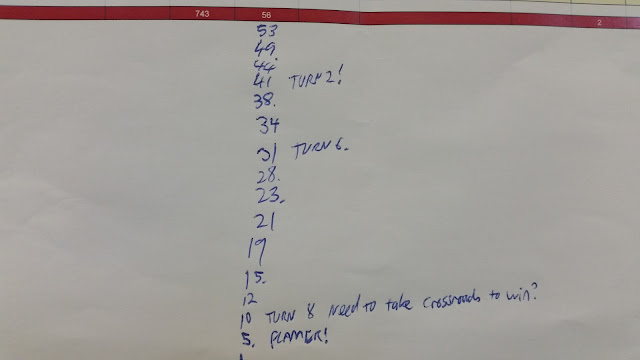 743 58 2
53
49.
44.
41 TURN 2!
38.
34
31 TURN 6.
28.
23.
21
19
15.
12
10 TURN 8 NEED to take Crossroads to win?
5. FLAMER!